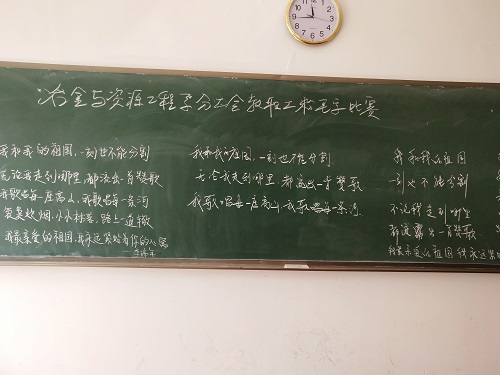 冶金与资源工程学分工会教职工粉笔字比赛
我和我的祖国,一刻也不能分割
无论我走到哪里,都流出一首赞歌
我歌唱每一座高山,我歌唱每一条河
袅袅炊烟,小小村落,路上一道辙
我最亲爱的祖国,我永远紧贴着你的心窝
我和我的祖国,一刻也不能分割
无论我走到哪里 都流出一首赞歌
我歌唱每一座高山,我歌唱每一条河
我和我的祖国
一刻也不能分割
不论我走到哪里
都流露出一首赞歌
我最亲爱的祖国我永远紧